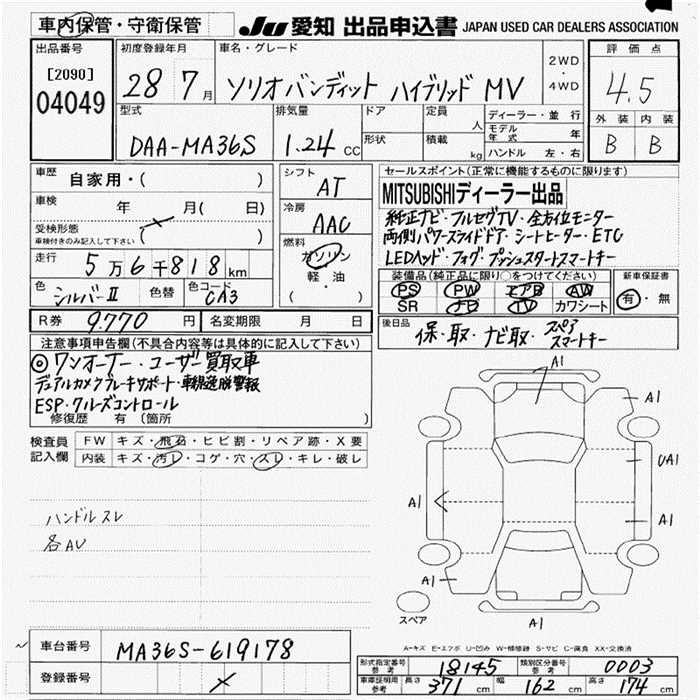 車内保管・守衛保管
JU 愛知 出品申込書 JAPAN USED CAR DEALERS ASSOCIATION
出品番号 初度登録年月 車名・グレード 2WD・4WD 評価点
[2090]
04049 28 7月 ソリオバンディット ハイブリッド MV 4.5
型式 排気量 ドア 定員 人 ディーラー・並行 外装 内装
DAA-MA36S 1.24 CC 形状 積載 kg モデル年式 年 B B
ハンドル 左・右
車歴 自家用・( ) シフト AT セールスポイント(正常に機能するものに限ります)
車検 年 月( 日) 冷房 AAC MITSUBISHIディーラー出品
受検形態 ( )
車検付きのみ記入して下さい
純正ナビ・フルセグTV・全方位モニター
両側パワースライドドア・シートヒーター・ETC
LEDヘッド・フォグ・プッシュスタートスマートキー
走行 5万6千818km 燃料 ガソリン 軽・油 ( )
装備品(純正品に限り○をつけてください) 新車保証書
PS PW エアB AW 有・無
SR ナビ TV カワシート
色 シルバーII 色替 色コード CA3
R券 9.770円 名変期限 月 日
後日品 保・取・ナビ取・スペアスマートキー
注意事項申告欄(不具合内容等は具体的に記入して下さい)
◎ワンオーナー・ユーザー買取車
デュアルカメラブレーキサポート・車線逸脱警報
ESP・クルーズコントロール
修復歴 有 (箇所 )
検査員記入欄 FW キズ・飛石・ヒビ割・リペア跡・X要
内装 キズ・汚レ・コゲ・穴・スレ・キレ・破レ
ハンドルスレ
各AU
A1
A1
UA1
A1
A1
A1
A1
スペア
A-キズ E-エクボ U-凹み W-補修跡 S-サビ C-腐食 XX-交換済
車台番号 MA36S-619178
登録番号
形式指定番号 参考 18145 類別区分番号 参考 0003
車庫証明用 参考 長さ 371cm 幅 162cm 高さ 174cm